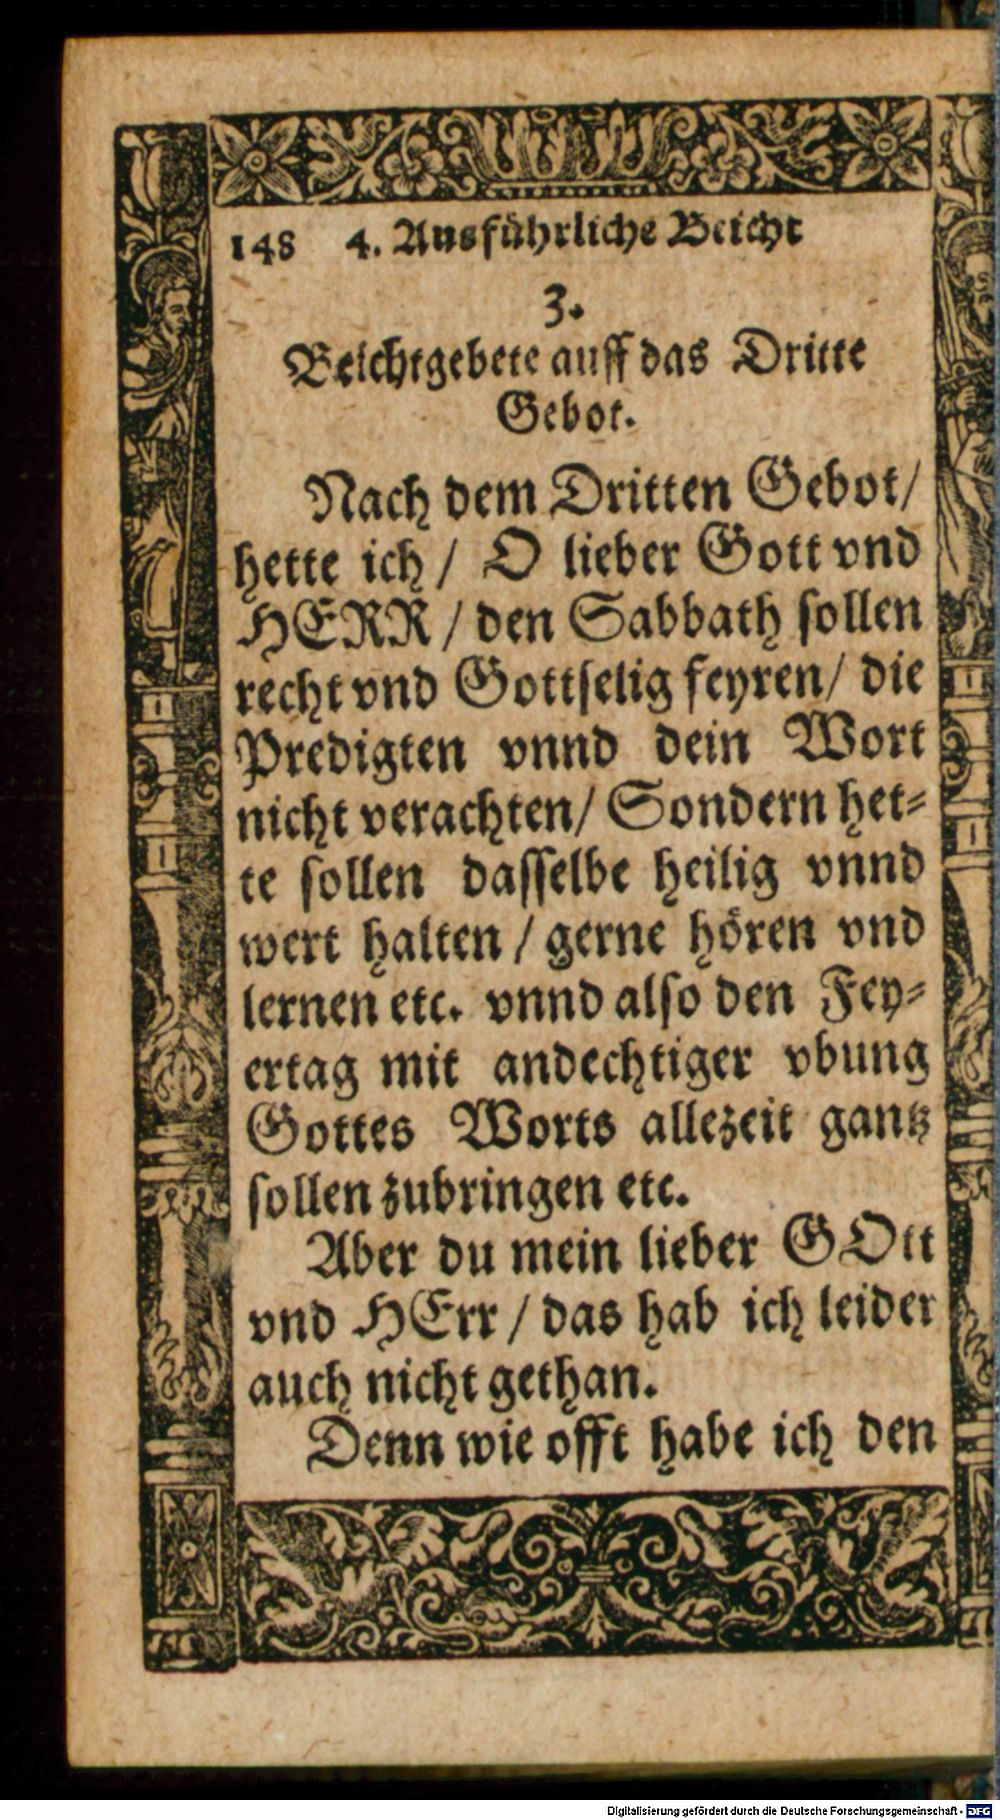 148 4. Ausführliche Beicht
3.
Beichtgebete auff das Dritte
Gebot.
Nach dem Dritten Gebot/
hette ich/ O lieber Gott vnd
HERR/ den Sabbath sollen
recht vnd Gottselig feyren/ die
Predigten vnnd dein Wort
nicht verachten/ Sondern het⸗
te sollen dasselbe heilig vnnd
wert halten/ gerne hören vnd
lernen etc. vnnd also den Fey⸗
ertag mit andechtiger vbung
Gottes Worts allezeit gantz
sollen zubringen etc.
Aber du mein lieber GOtt
vnd HErr/ das hab ich leider
auch nicht gethan.
Denn wie offt habe ich den
Digitalisierung gefördert durch die Deutsche Forschungsgemeinschaft - DFG